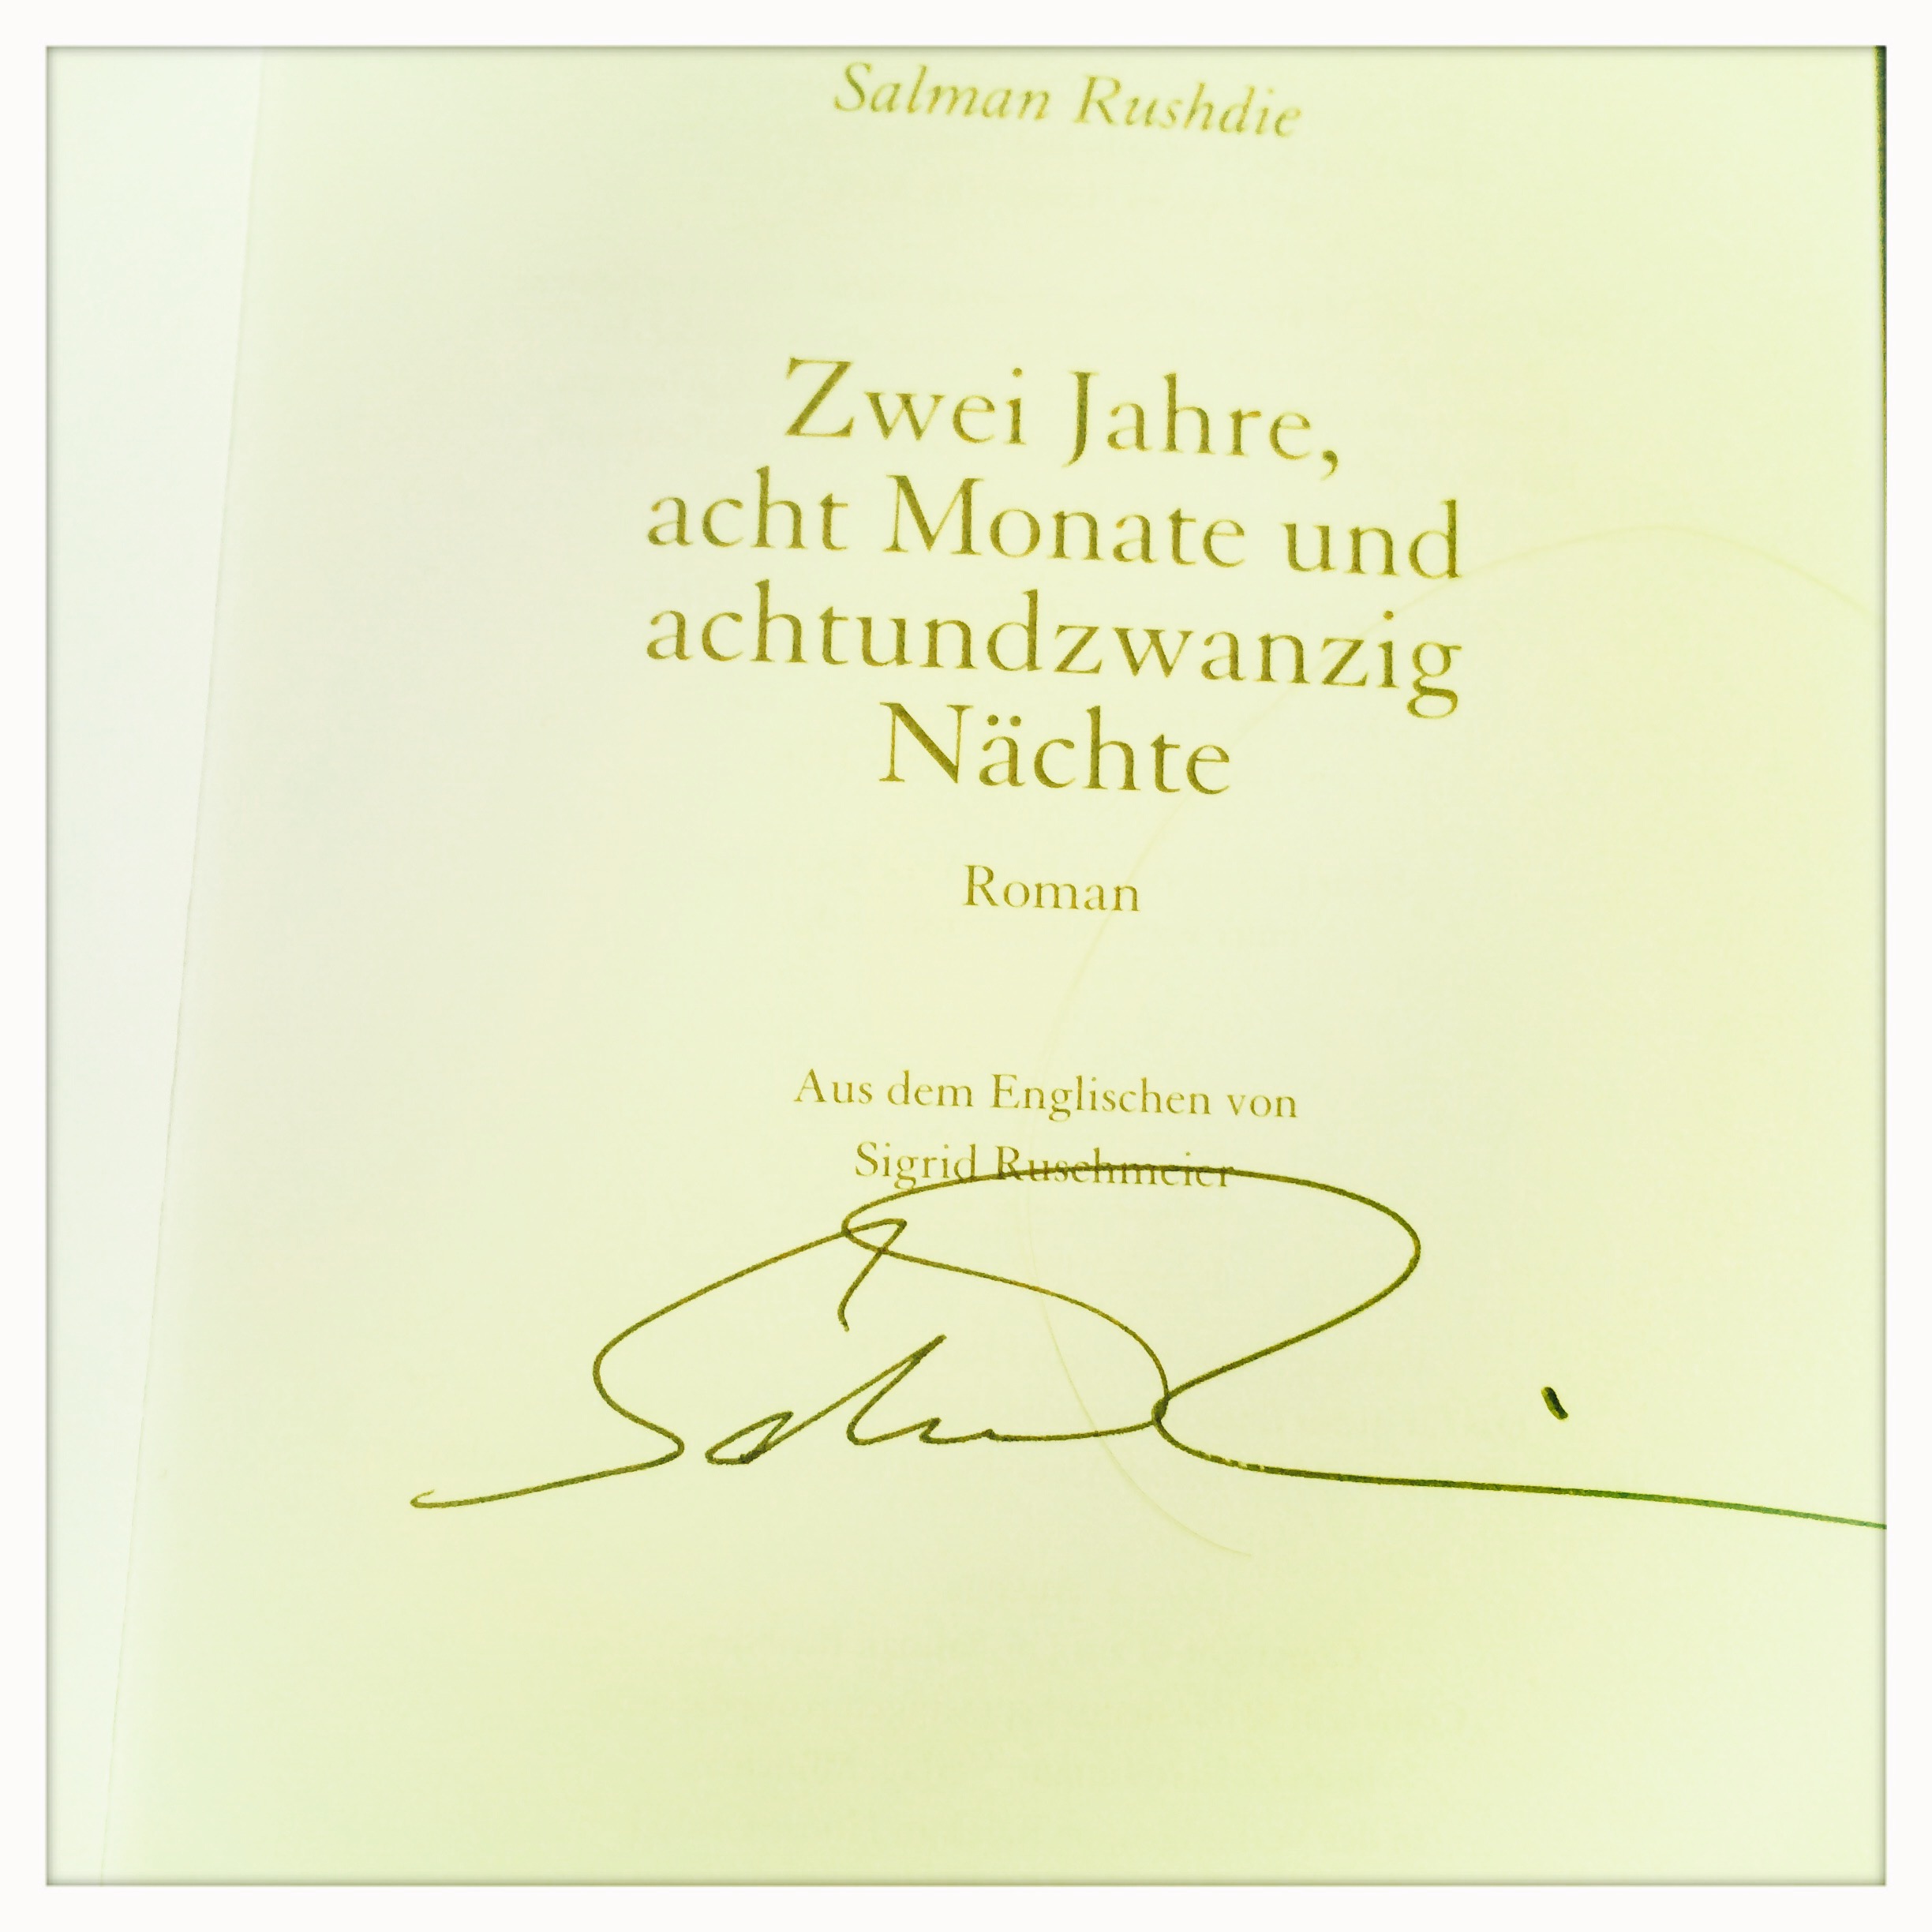 Salman Rushdie
Zwei Jahre,
acht Monate und
achtundzwanzig
Nächte
Roman
Aus dem Englischen von
Sigrid Ruschmeier